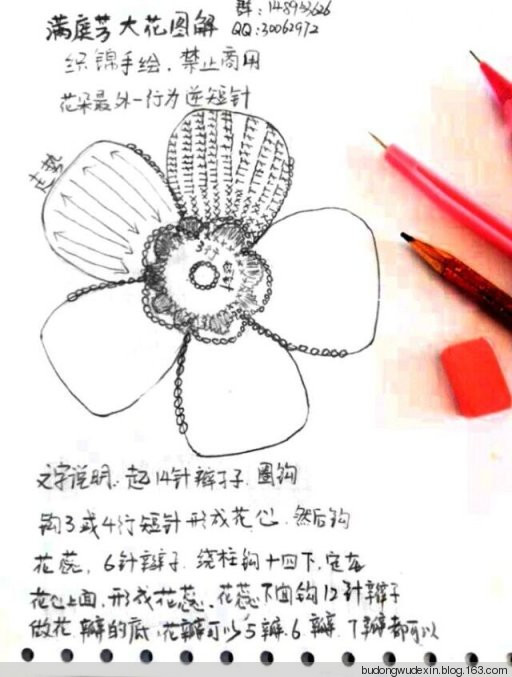 满庭芳大花图解
群:148953626
QQ:30062972
织锦手绘,禁止商用
花朵最外一行为逆短针
文字说明:起14针辫子.圈钩
钩3或4行短针形成花心.然后钩
花蕊,6针辫子.绕柱钩十四下,定在
花心上面,形成花蕊.花蕊下面钩12针辫子
做花瓣的底,花瓣可以5瓣.6瓣.7瓣都可以
budongwudexin.blog.163.com